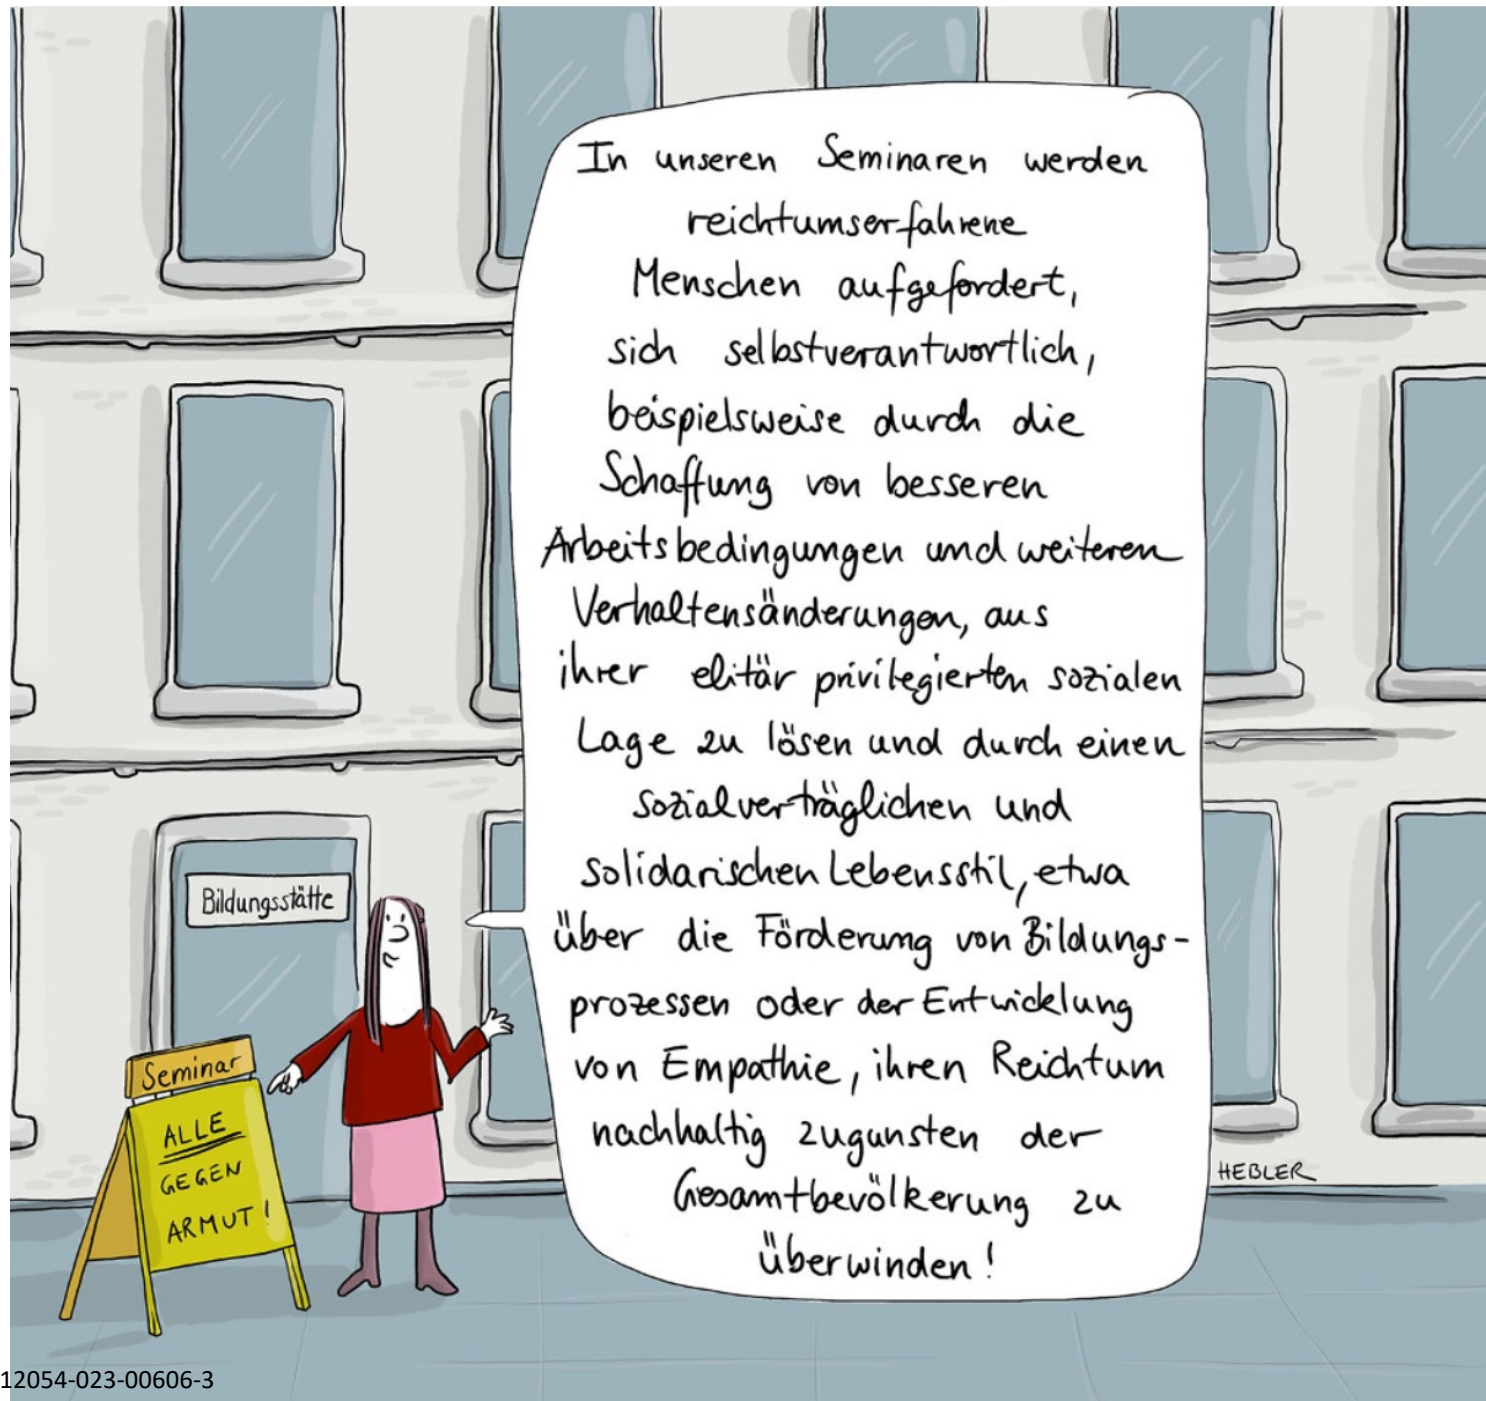 In unseren Seminaren werden
reichtumserfahrene
Menschen aufgefordert,
sich selbstverantwortlich,
beispielsweise durch die
Schaffung von besseren
Arbeitsbedingungen und weiteren
Verhaltensänderungen, aus
ihrer elitär privilegierten sozialen
Lage zu lösen und durch einen
sozialverträglichen und
solidarischen Lebensstil, etwa
über die Förderung von Bildungs-
prozessen oder der Entwicklung
von Empathie, ihren Reichtum
nachhaltig zugunsten der
Gesamtbevölkerung zu
überwinden!
Bildungsstätte
Seminar
ALLE
GEGEN
ARMUT!
HEBLER
12054-023-00606-3